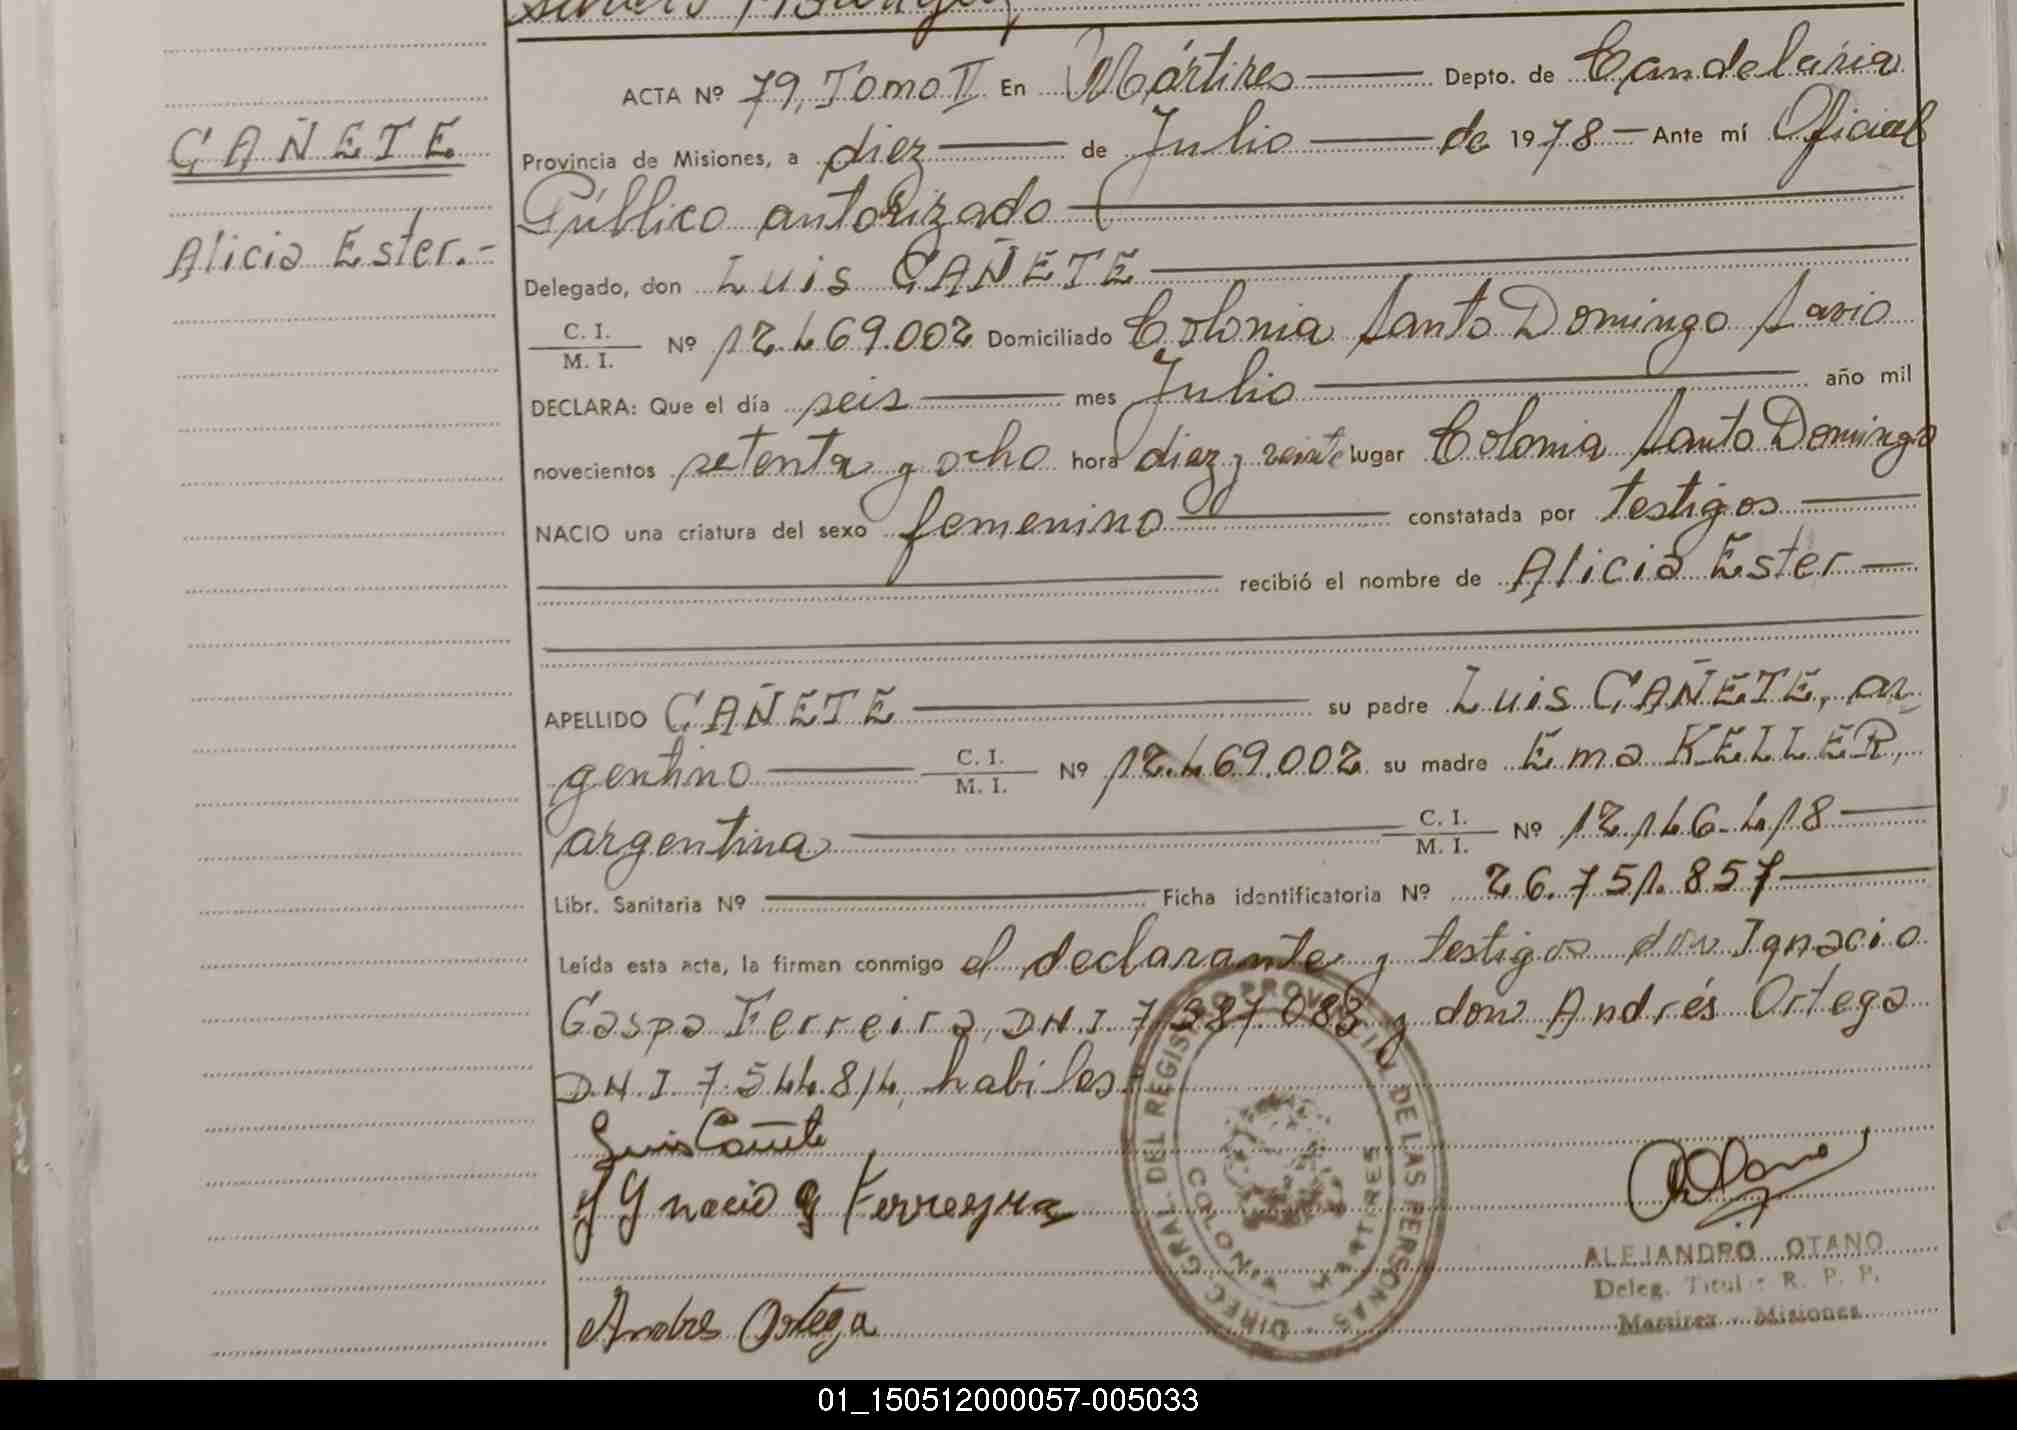 CAÑETE
Alicia Ester.-
ACTA Nº 79, Tomo II En Mártires Depto. de Candelaria
Provincia de Misiones, a diez de Julio de 1978 Ante mí Oficial
Público autorizado
Delegado, don Luis CAÑETE
C. I.
M. I. Nº 12.469.002 Domiciliado Colonia Santo Domingo Savio
DECLARA: Que el día seis mes Julio año mil
novecientos setenta y ocho hora diez y veinte lugar Colonia Santo Domingo
NACIO una criatura del sexo femenino constatada por testigos
recibió el nombre de Alicia Ester
APELLIDO CAÑETE su padre Luis CAÑETE, ar-
gentino C. I. M. I. Nº 12.469.002 su madre Ema KELLER,
argentina C. I. M. I. Nº 12.146.418
Libr. Sanitaria Nº Ficha identificatoria Nº 26.751.857
Leída esta acta, la firman conmigo el declarante y testigos don Ignacio
Gaspa Ferreira, D.N.I. 7.387.083 y don Andrés Ortega
D.N.I. 7.544.814, habiles.
Luis Cañete
Ygnacio g Ferreyra
Andres Ortega
DIREC. GRAL. DEL REGISTRO PROVINCIAL DE LAS PERSONAS
COLONIA MARTIRES
ALEJANDRO OTANO
Deleg. Titular R. P. P.
Martires - Misiones
01_150512000057-005033